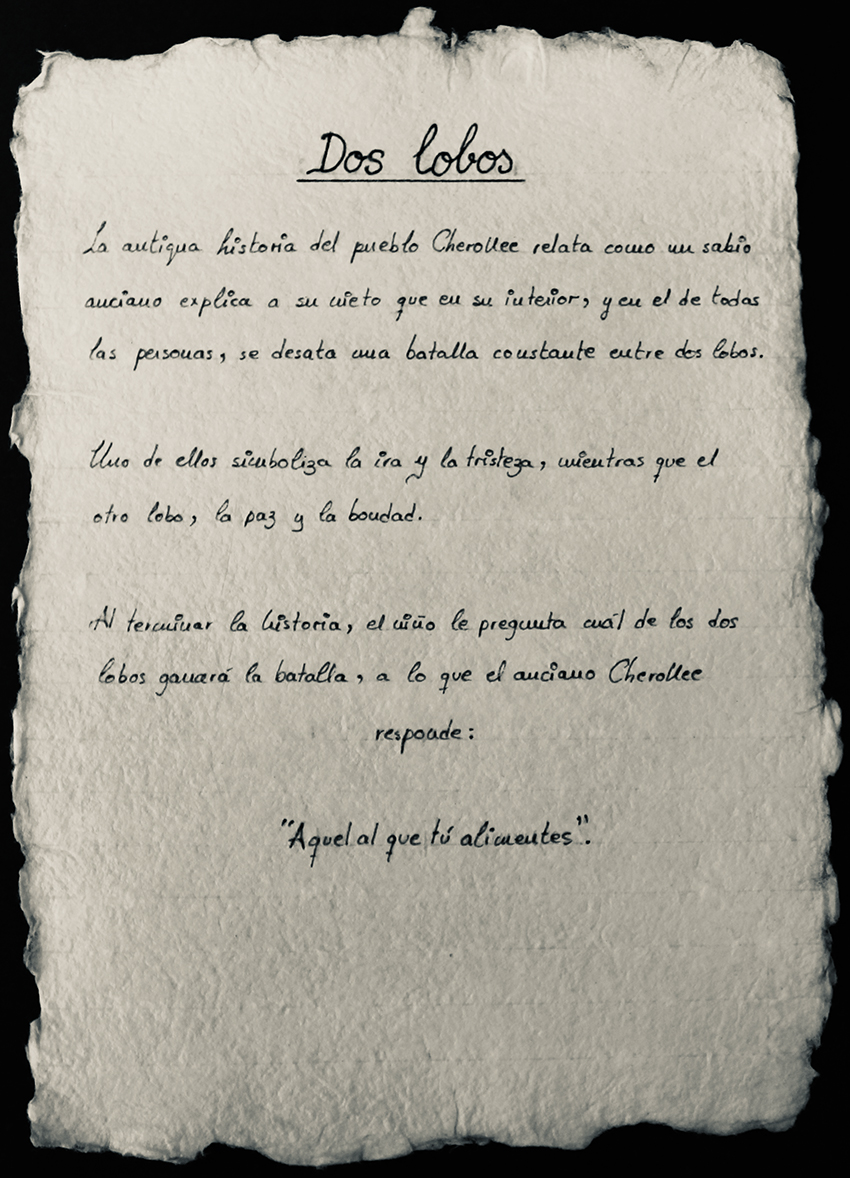 Dos lobos
La antigua historia del pueblo Cherokee relata como un sabio
anciano explica a su nieto que en su interior, y en el de todas
las personas, se desata una batalla constante entre dos lobos.
Uno de ellos simboliza la ira y la tristeza, mientras que el
otro lobo, la paz y la bondad.
Al terminar la historia, el niño le pregunta cuál de los dos
lobos ganará la batalla, a lo que el anciano Cherokee
responde:
"Aquel al que tú alimentes".